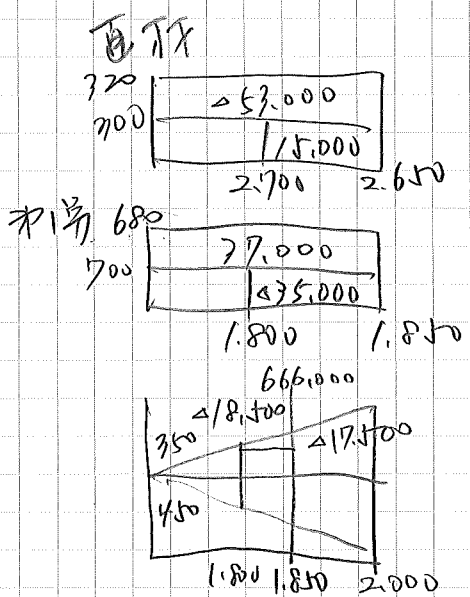 直材
320
△53.000
300
15.000
2.700 2.650
680
37.000
700
△35.000
1.800 1.850
666,000
△18,500
350
△17.500
450
1.800 1.850 2.000